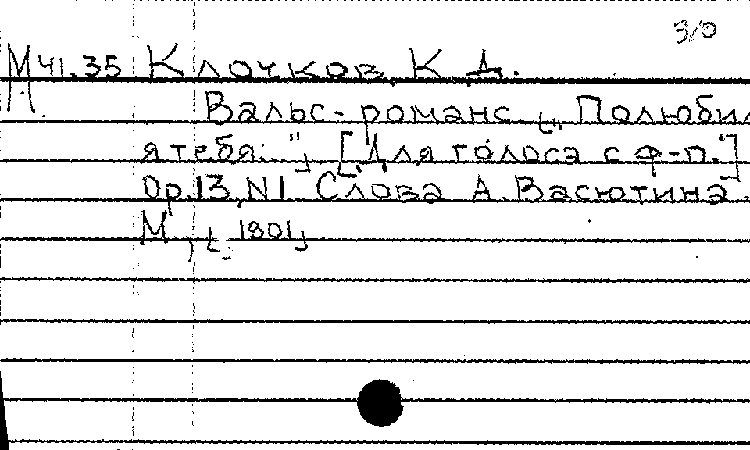 3/0
М 41.35 Клочков, К. Д.
М.
Вальс-романс „Полюбил
я тебя..." [Для голоса с ф-п.]
Op.13, N1 Слова А. Васютина.
М., [1801]